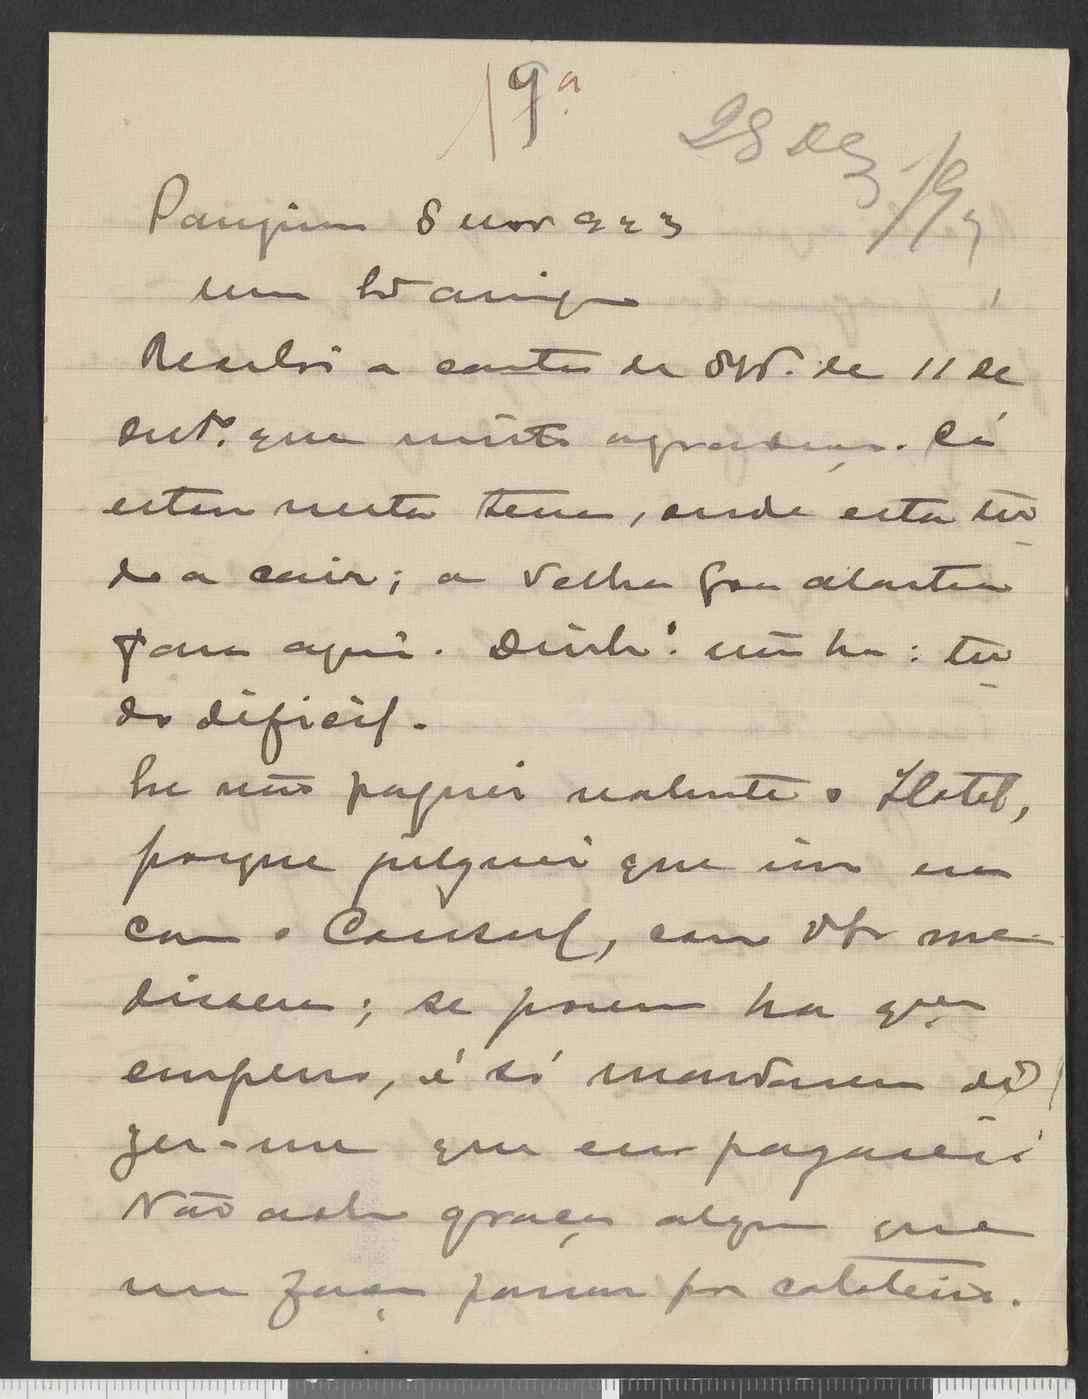 19ª
28 Dez /92
Pangim 8 nov 922
meu bo amigo
Recebi a carta de de 11 de
set.º que muito agradeço. Cá
estou nesta terra, onde esta tu
do a cair; a Velha Goa alastra
para aqui. Dinhº: não ha: tu
do dificil.
Eu não paguei o Hotel,
porque julguei que isso era
com o Consul, como me
dissera; se porem ha
empeno, é só mandarem di
zer-me que eu pagarei
Não acho graça alguma que
me faça passar por caloteiro.